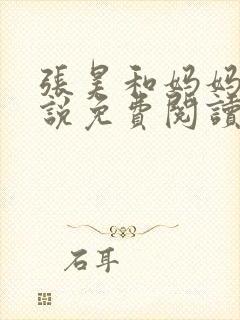 張昊和妈妈
說免費閱讀
石耳